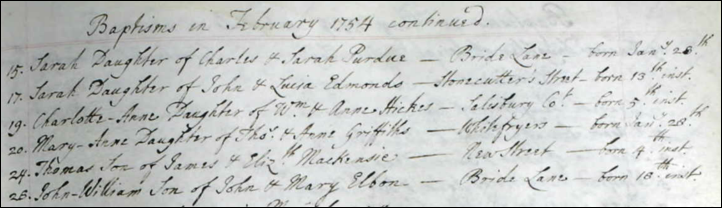 Baptisms in February 1754 continued.
15. Sarah Daughter of Charles & Sarah Purdue — Bride Lane — born Jany. 23th
17. Sarah Daughter of John & Lucia Edmonds — Stonecutter's Street born 13th inst.
19. Charlotte-Anne Daughter of Wm. & Anne Hickes — Salisbury Cot. — born 5th inst.
20. Mary-Anne Daughter of Thos. & Anne Griffiths — Whitefryers — born Jany. 28th
24. Thomas Son of James & Elizth Mackensie — New Street — born 4th inst
25. John-William Son of John & Mary Elbon — Bride Lane — born 18th inst.